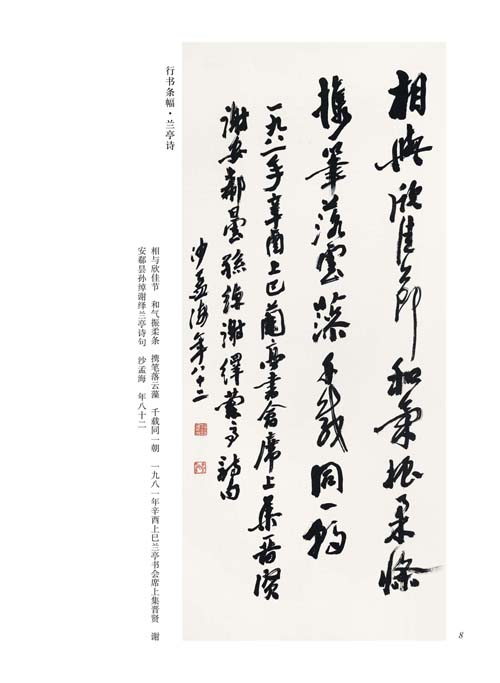 相與欣佳節和氣振柔條
攜筆落雲藻千載同一朝
一九八一年辛酉上巳蘭亭書會席上集晉賢
謝安郗曇孫綽謝繹蘭亭詩句
沙孟海年八十二
行书条幅·兰亭诗
相与欣佳节 和气振柔条 携笔落云藻 千载同一朝 一九八一年辛酉上巳兰亭书会席上集晋贤 谢
安郗昙孙绰谢绎兰亭诗句 沙孟海 年八十二
8